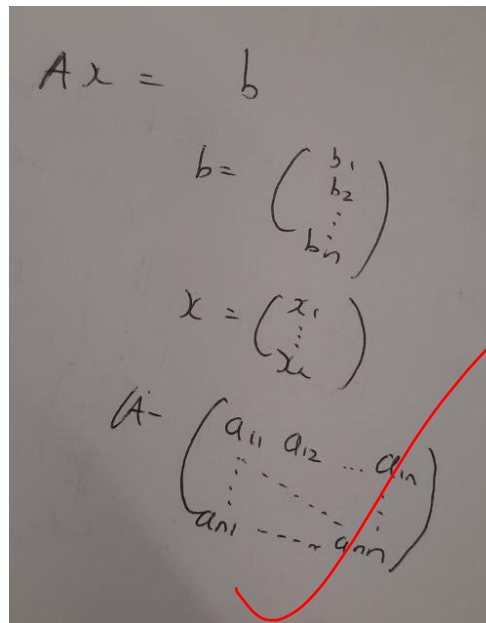 Ax = b
b = ( b1
b2
⋮
bn )
x = ( x1
⋮
xn )
A - ( a11 a12 ... a1n
⋮ ⋱ ⋮
an1 ---- ann )